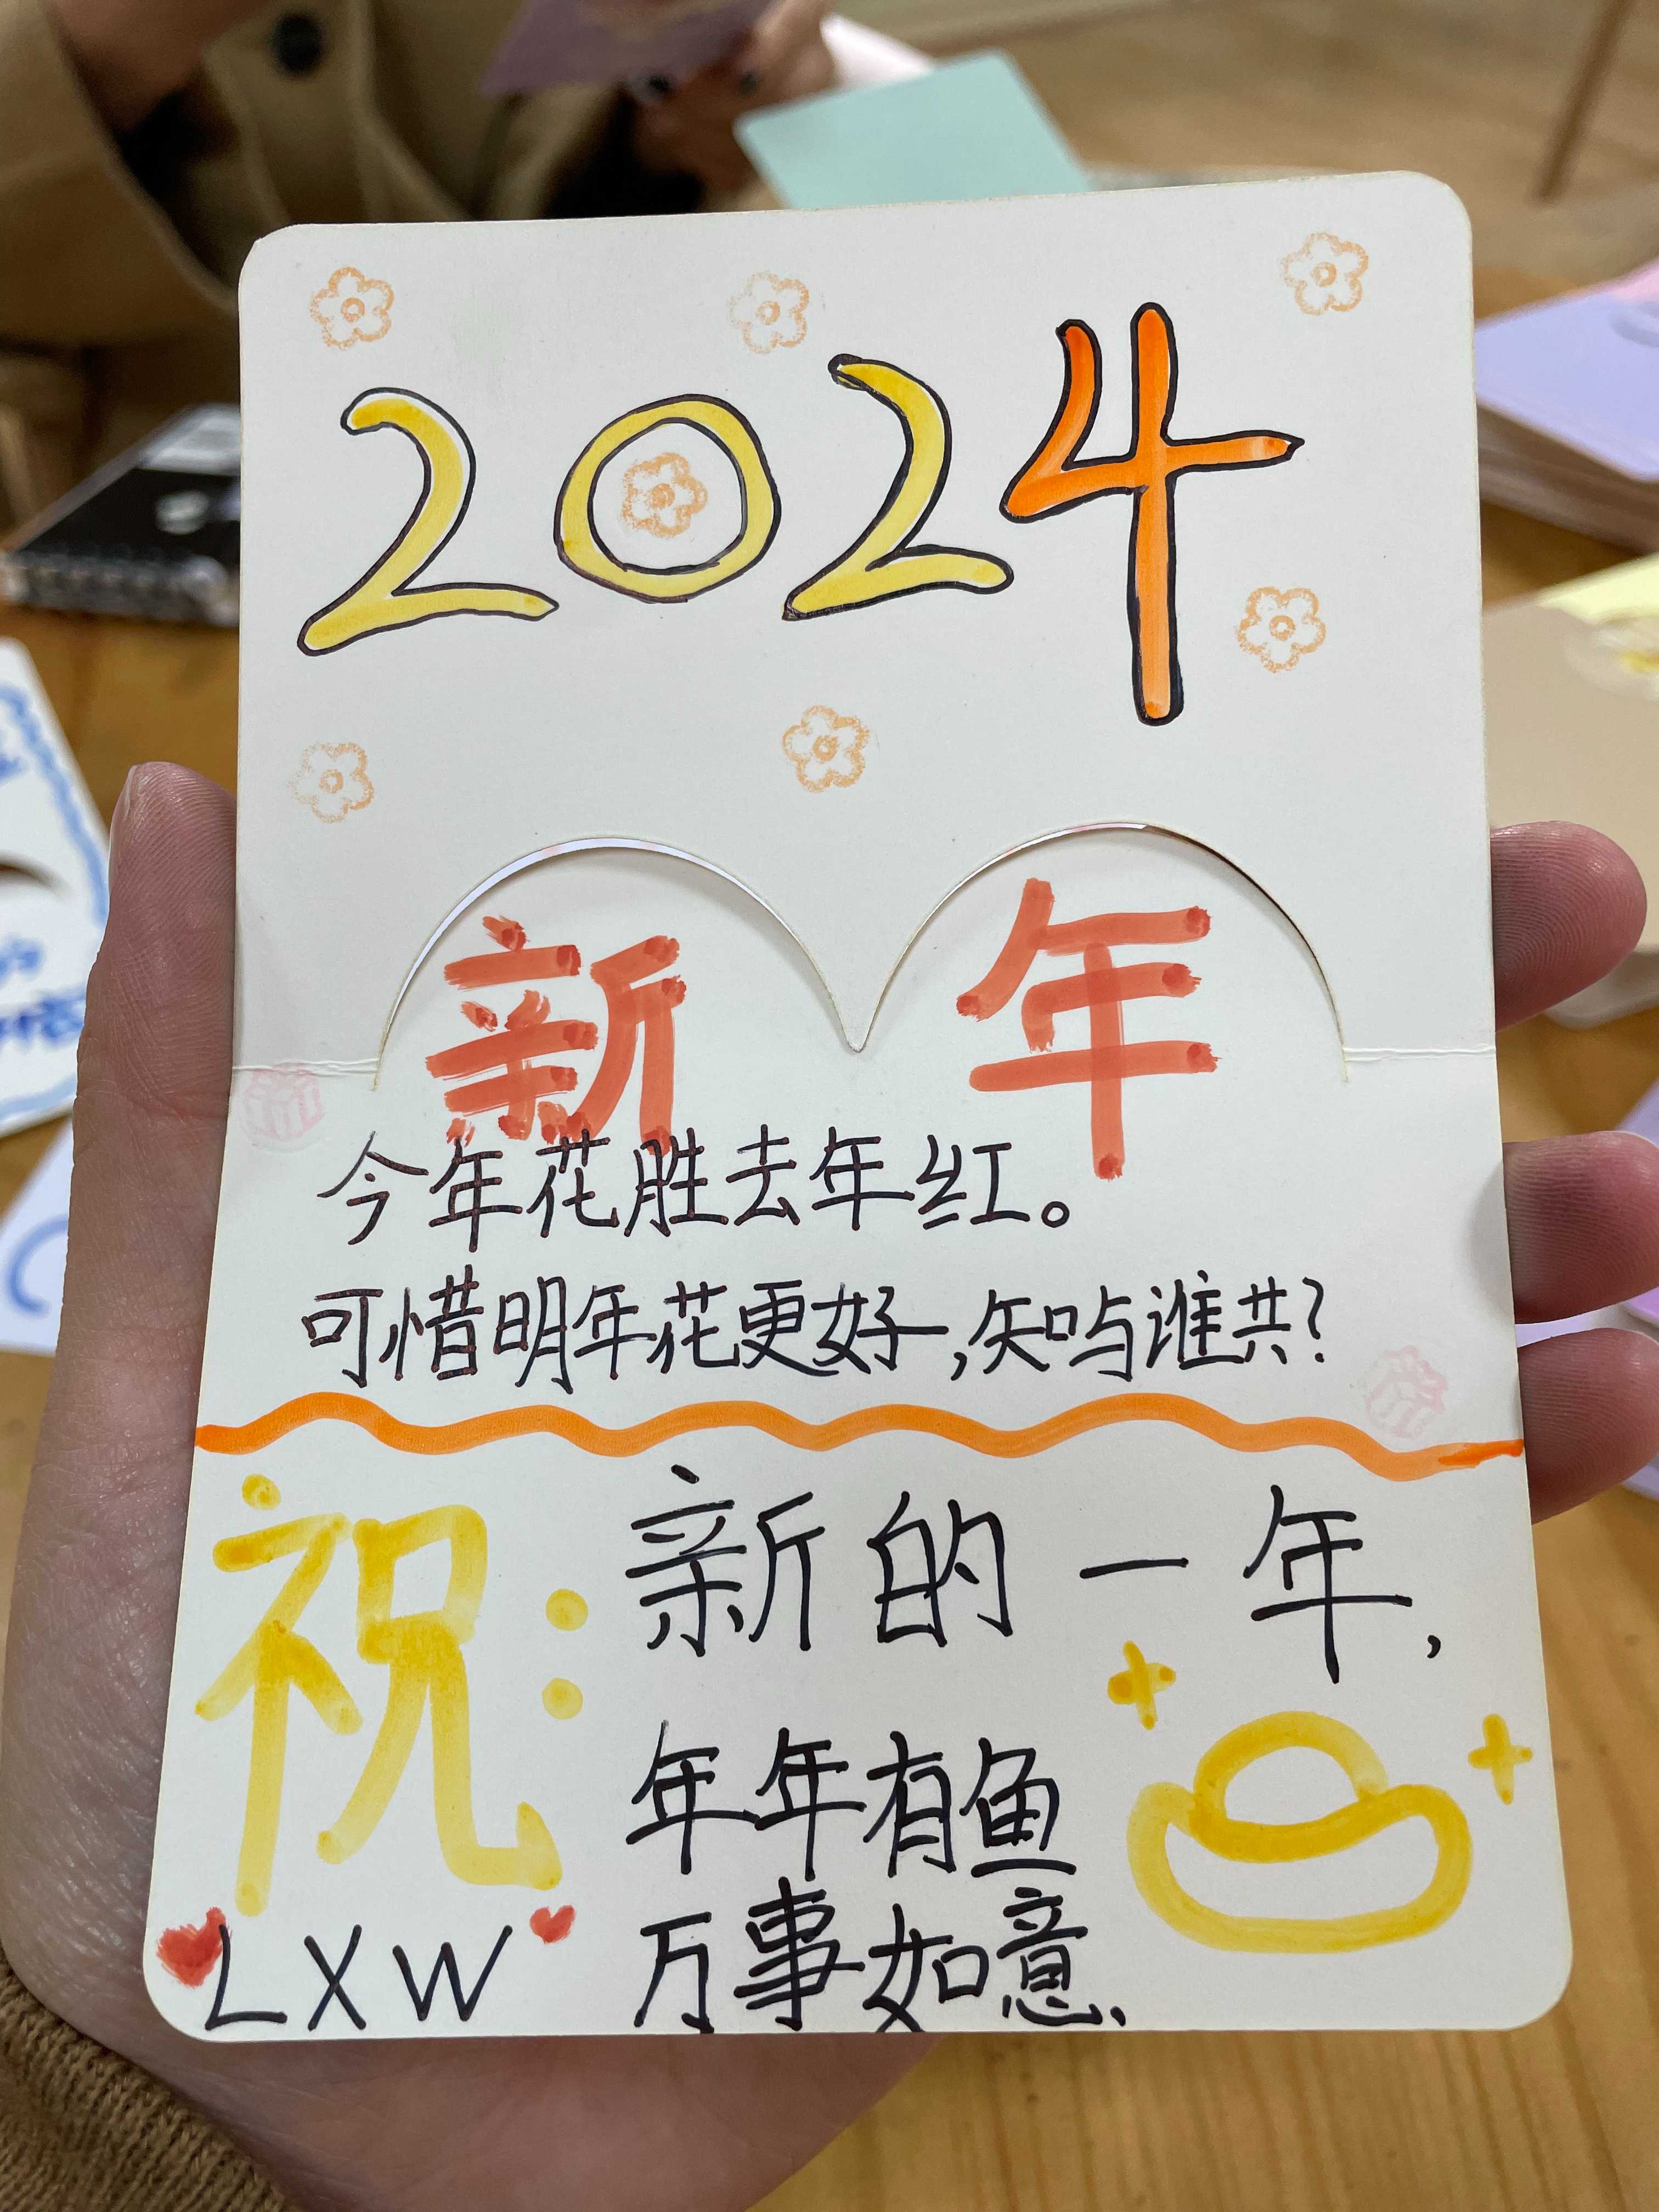 2024
新年
今年花胜去年红。
可惜明年花更好,知与谁共?
祝:新的一年,
年年有鱼
万事如意、
LXW